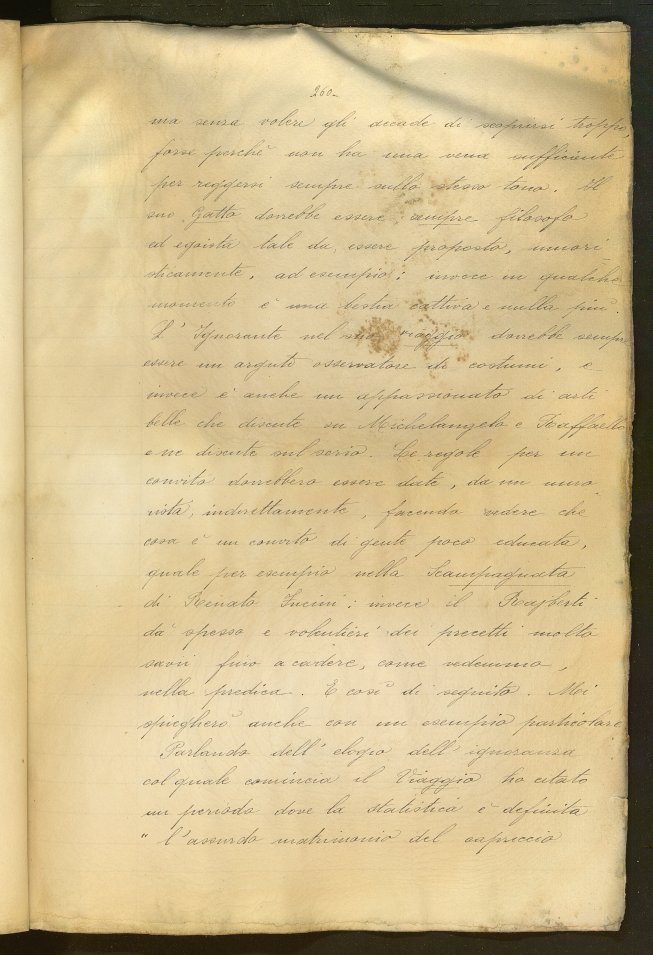 260-
ma senza volere gli accade di scoprirsi troppo,
forse perchè non ha una vena sufficiente
per reggersi sempre sullo stesso tono. Il
suo Gatto dovrebbe essere sempre filosofo
ed egoista tale da essere proposto, umori-
sticamente, ad esempio; invece in qualche
momento è una bestia cattiva e nulla più.
L'Ignorante nel suo viaggio dovrebbe sempre
essere un arguto osservatore di costumi, e
invece è anche un appassionato di arti
belle che discute su Michelangelo e Raffaello
e ne discute sul serio. Le regole per un
convito dovrebbero essere date, da un umo
rista, indirettamente, facendo vedere che
cosa è un convito di gente poco educata,
quale per esempio nella Scampagnata
di Renato Fucini; invece il Rajberti
dà spesso e volentieri dei precetti molto
savii fino a cadere, come vedemmo,
nella predica. E così di seguito. Mi
spiegherò anche con un esempio particolare
Parlando dell'elogio dell'ignoranza
col quale comincia il Viaggio ho citato
un periodo dove la statistica è definita
"l'assurdo matrimonio del capriccio